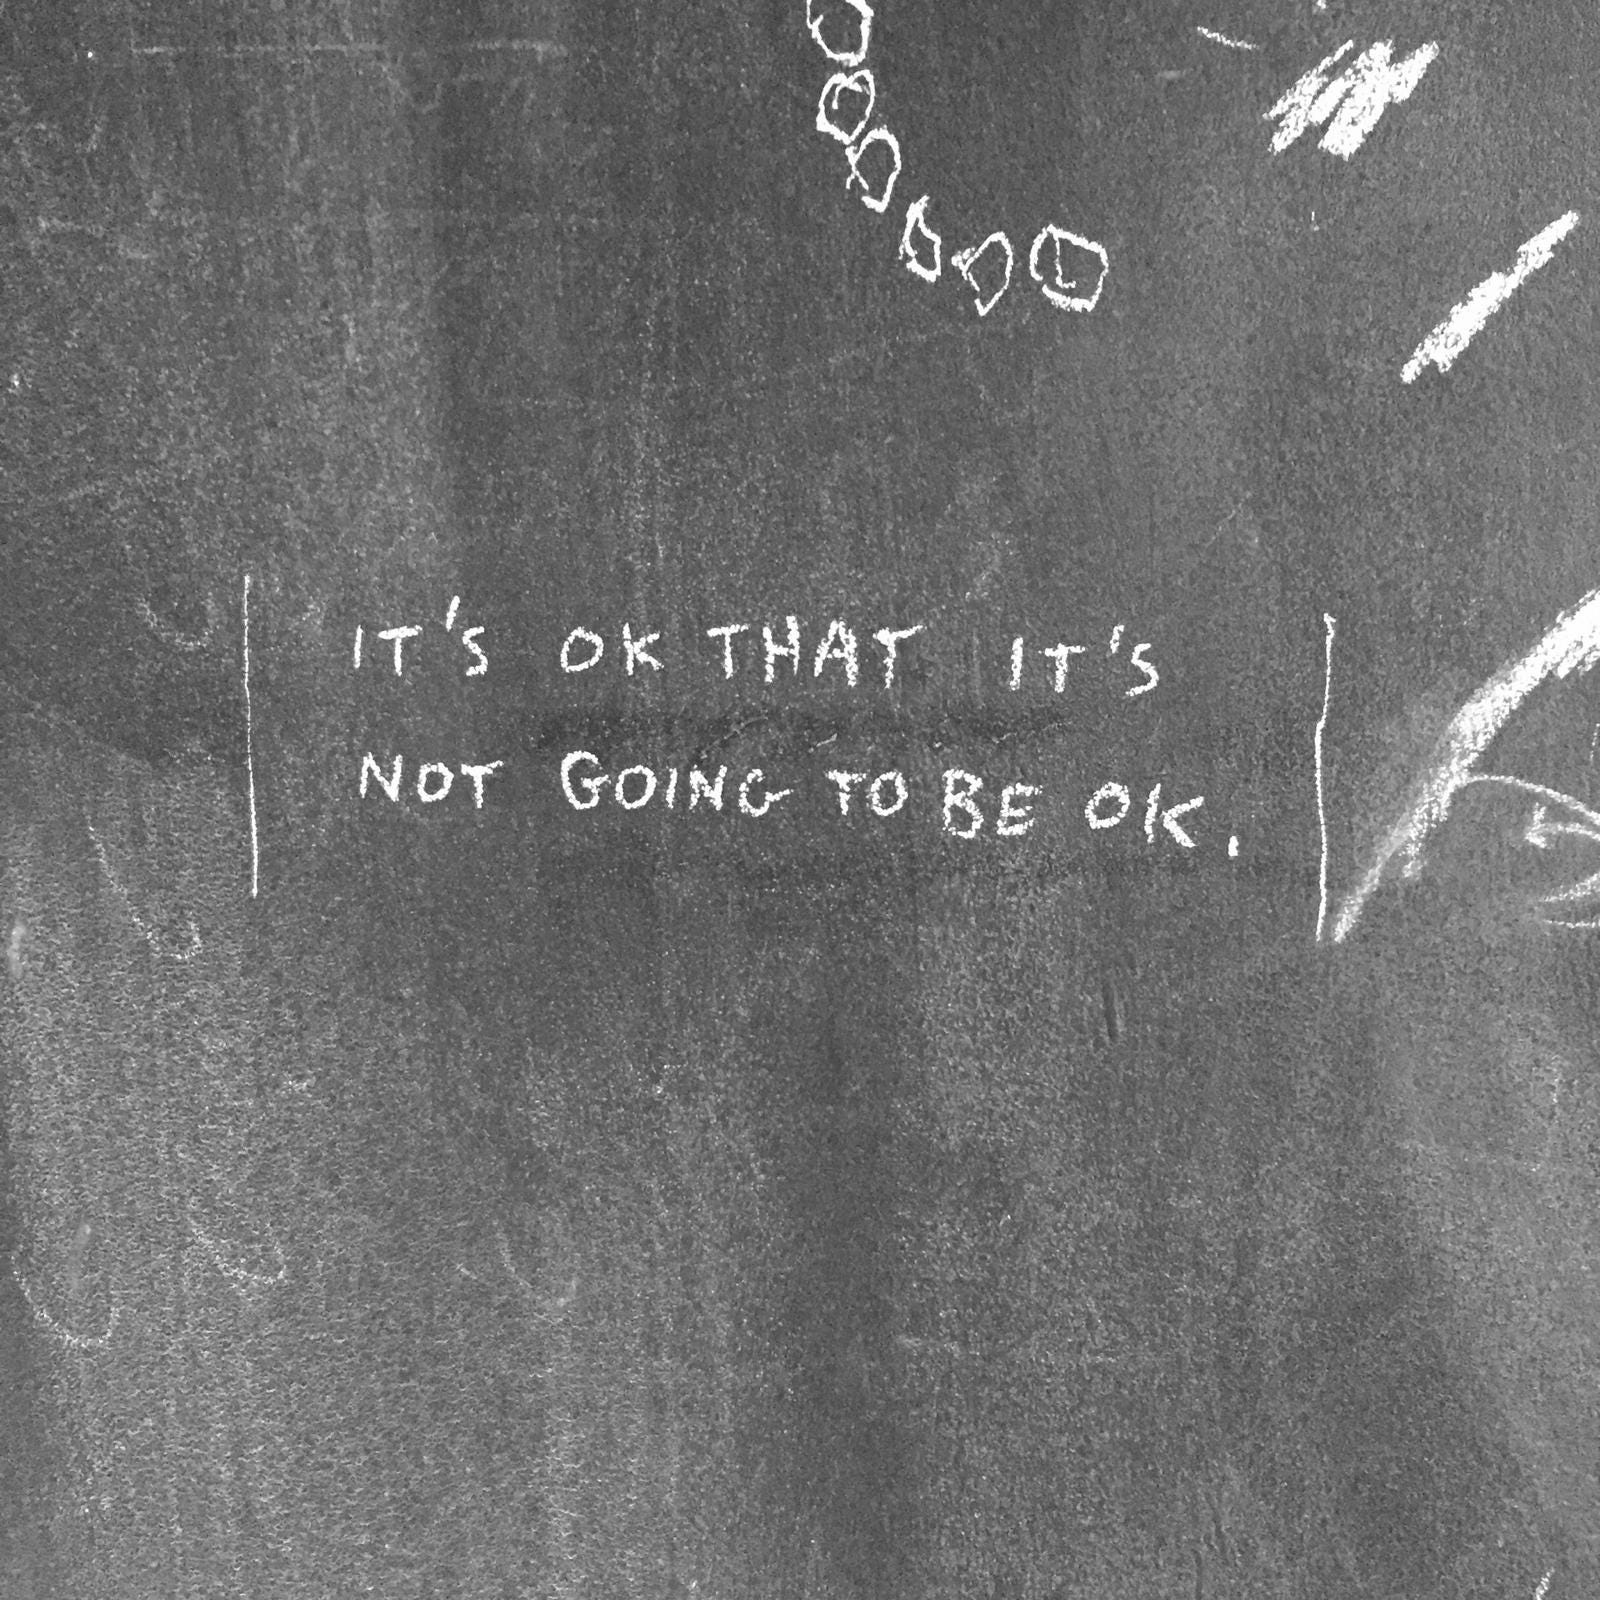 IT'S OK THAT IT'S
NOT GOING TO BE OK.